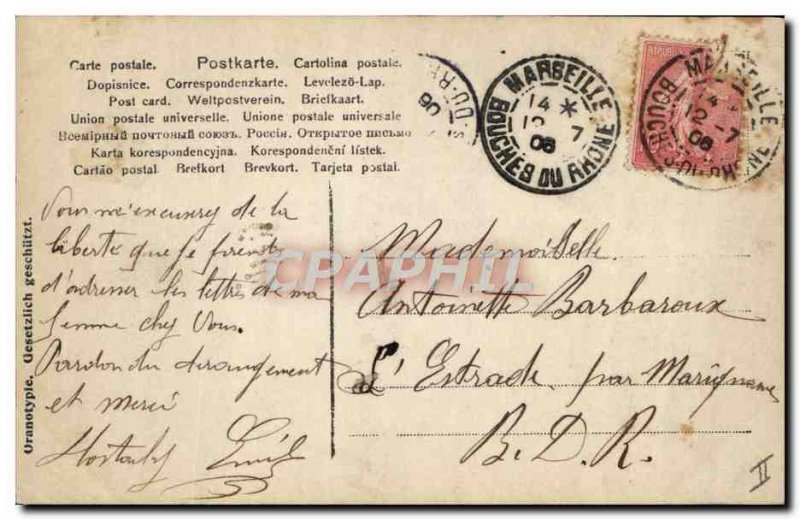 Carte postale. Postkarte. Cartolina postale.
Dopisnice. Correspondenzkarte. Levelező-Lap.
Post card. Weltpostverein. Briefkaart.
Union postale universelle. Unione postale universale
Всемірный почтовый союзъ. Россія. Открытое письмо
Karta korespondencyjna. Korespondenční lístek.
Cartão postal Brefkort Brevkort. Tarjeta postal.
DU-R
06
MARSEILLE
14 *
12 7
06
BOUCHES DU RHONE
MARSEILLE
14
12 -7
06
BOUCHES-DU-RHONE
Vous m'excuserez de la
liberté que je prends
d'adresser les lettres de ma
femme chez Vous.
Pardon du dérangement
et merci
Emile
Mademoiselle
Antoinette Barbaroux
L'Estrade par Marignane
B.D.R.
II
Uranotypie. Gesetzlich geschützt.
CPAPHIL